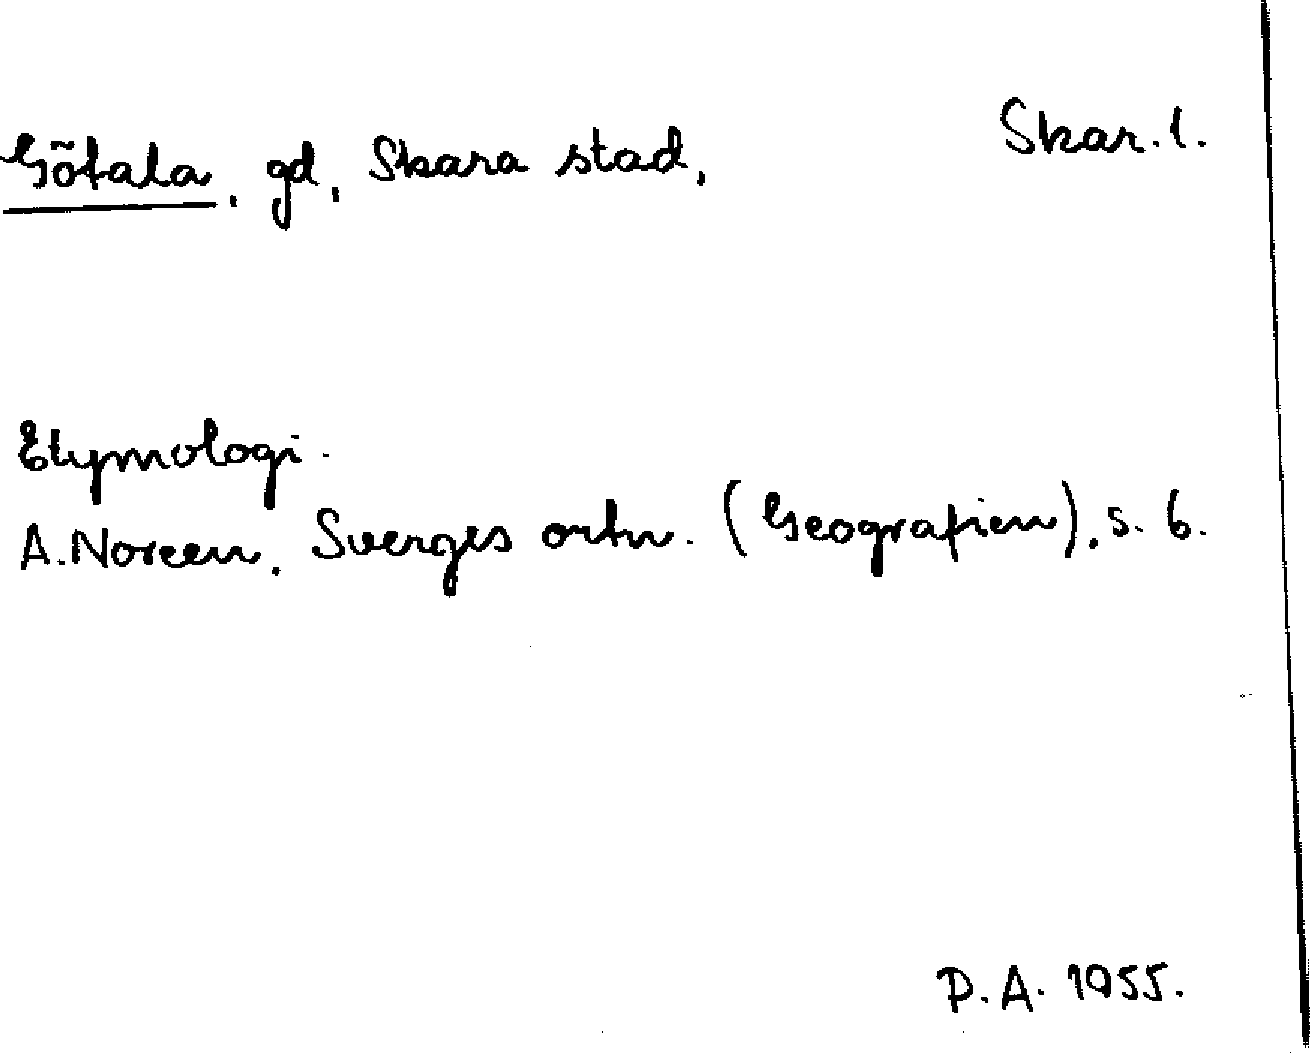 Götala, gd, Skara stad, Skar. l.
Etymologi.
A. Noreen, Sverges ortn. (Geografien), s. 6.
P.A. 1955.